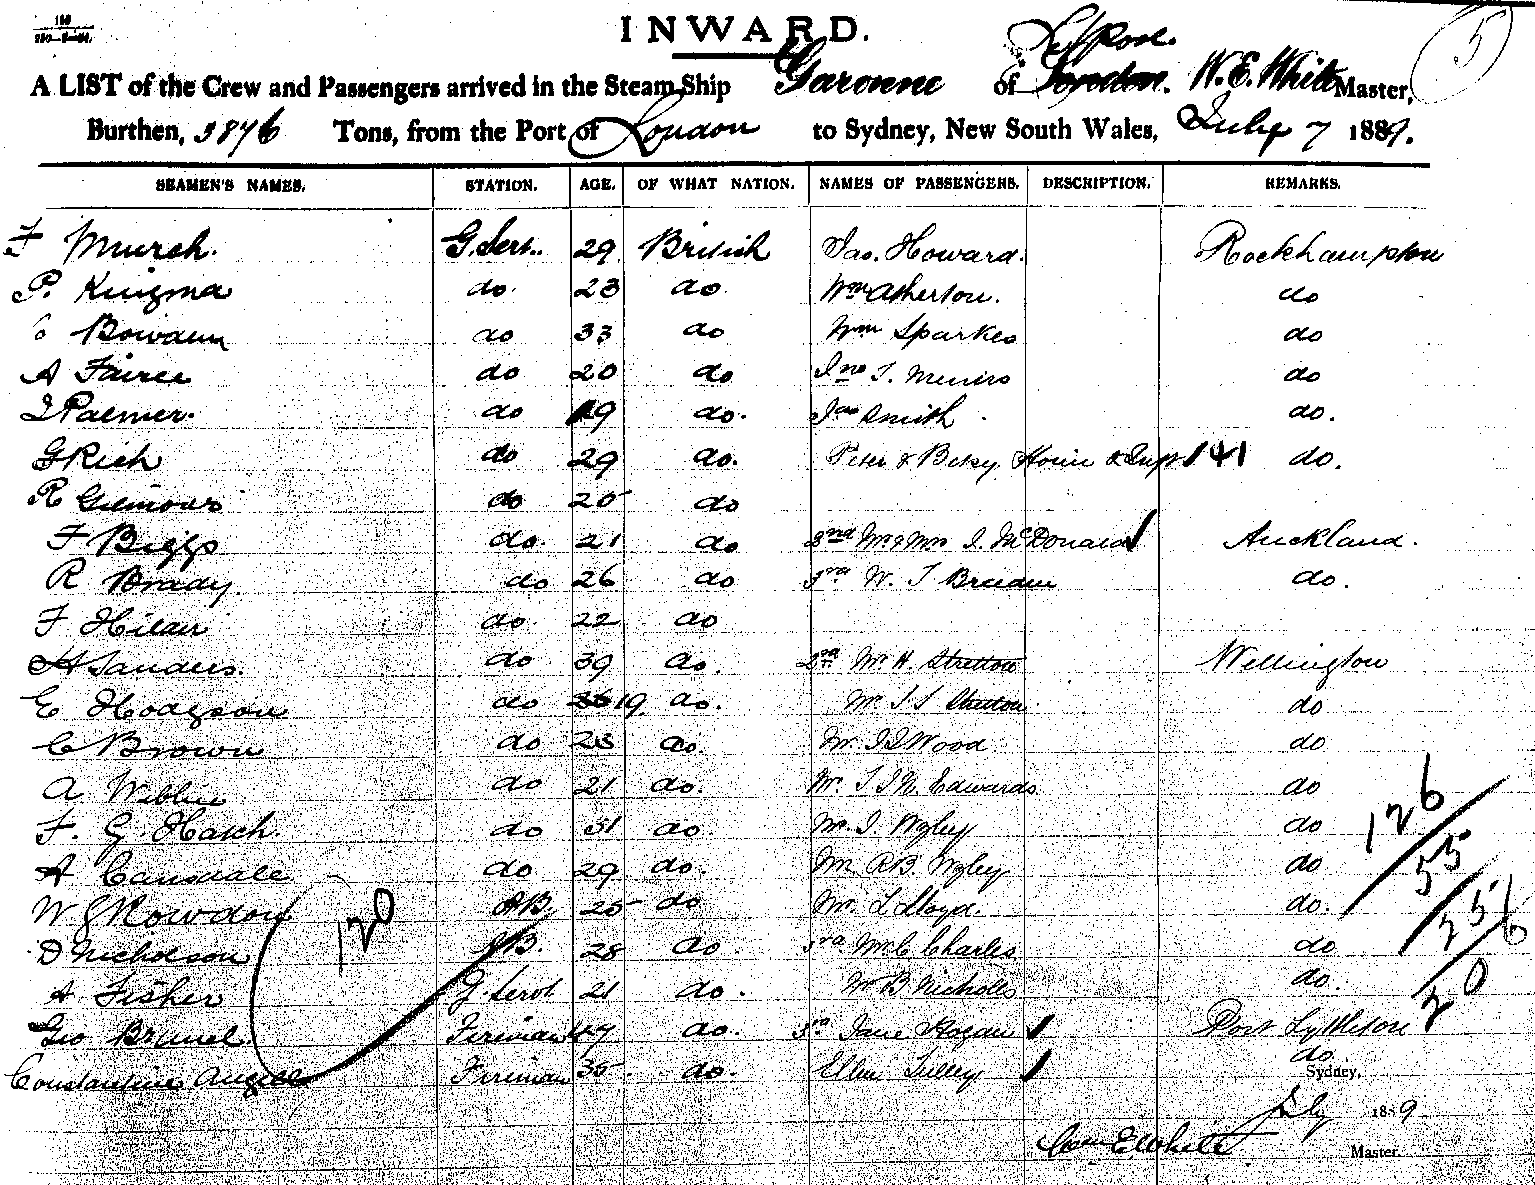 INWARD.
5
L'pool.
A LIST of the Crew and Passengers arrived in the Steam Ship Garonne of London. W. E. White Master,
Burthen, 3876 Tons, from the Port of London to Sydney, New South Wales, July 7 1889.
SEAMEN'S NAMES. STATION. AGE. OF WHAT NATION. NAMES OF PASSENGERS. DESCRIPTION. REMARKS.
F Murch. G. Serv. 29 British Jas. Howard. Rockhampton
P. Kingma do. 23 do. Wm Atherton. do
C Bowden do 33 do Wm Sparkes do
A do 20 do Jno T. do
J Palmer. do 19 do. Jas Smith do.
G Rich do 29 do. Peter & Betsy & Inft 1+1 do.
R Gilmour do 25 do
F Biggs do. 21 do 2nd Mr & Mrs J. McDonald Auckland.
R Brady. do 26 do 3rd W. J do.
F do 22 do
H Sanders. do 39 do. 2nd Mr H. Stretton Wellington
E Hodgson do 19. do. Mr J S Stretton do
C Brown do 23 do. Mr J S Wood do
A do 21 do. Mr. T J N Edwards do
F. G. Hatch. do 31 do Mr. J do
A do 29 do. Mr R B. do
W G Rowdon A.B. 25 do Mr. L Lloyd. do.
D Nicholson A.B. 28 do. 3rd Mr C Charles do
A Fisher G. Servt 21 do. Mr B. Nicholls do.
Geo Brunel Fireman 47 do. 3rd Jane Hogan Port Lyttleton
Constantine Fireman 35 do. Ellen Tulley do
120
126
55
251
6
20
Sydney,
July 1889
Wm E White Master.